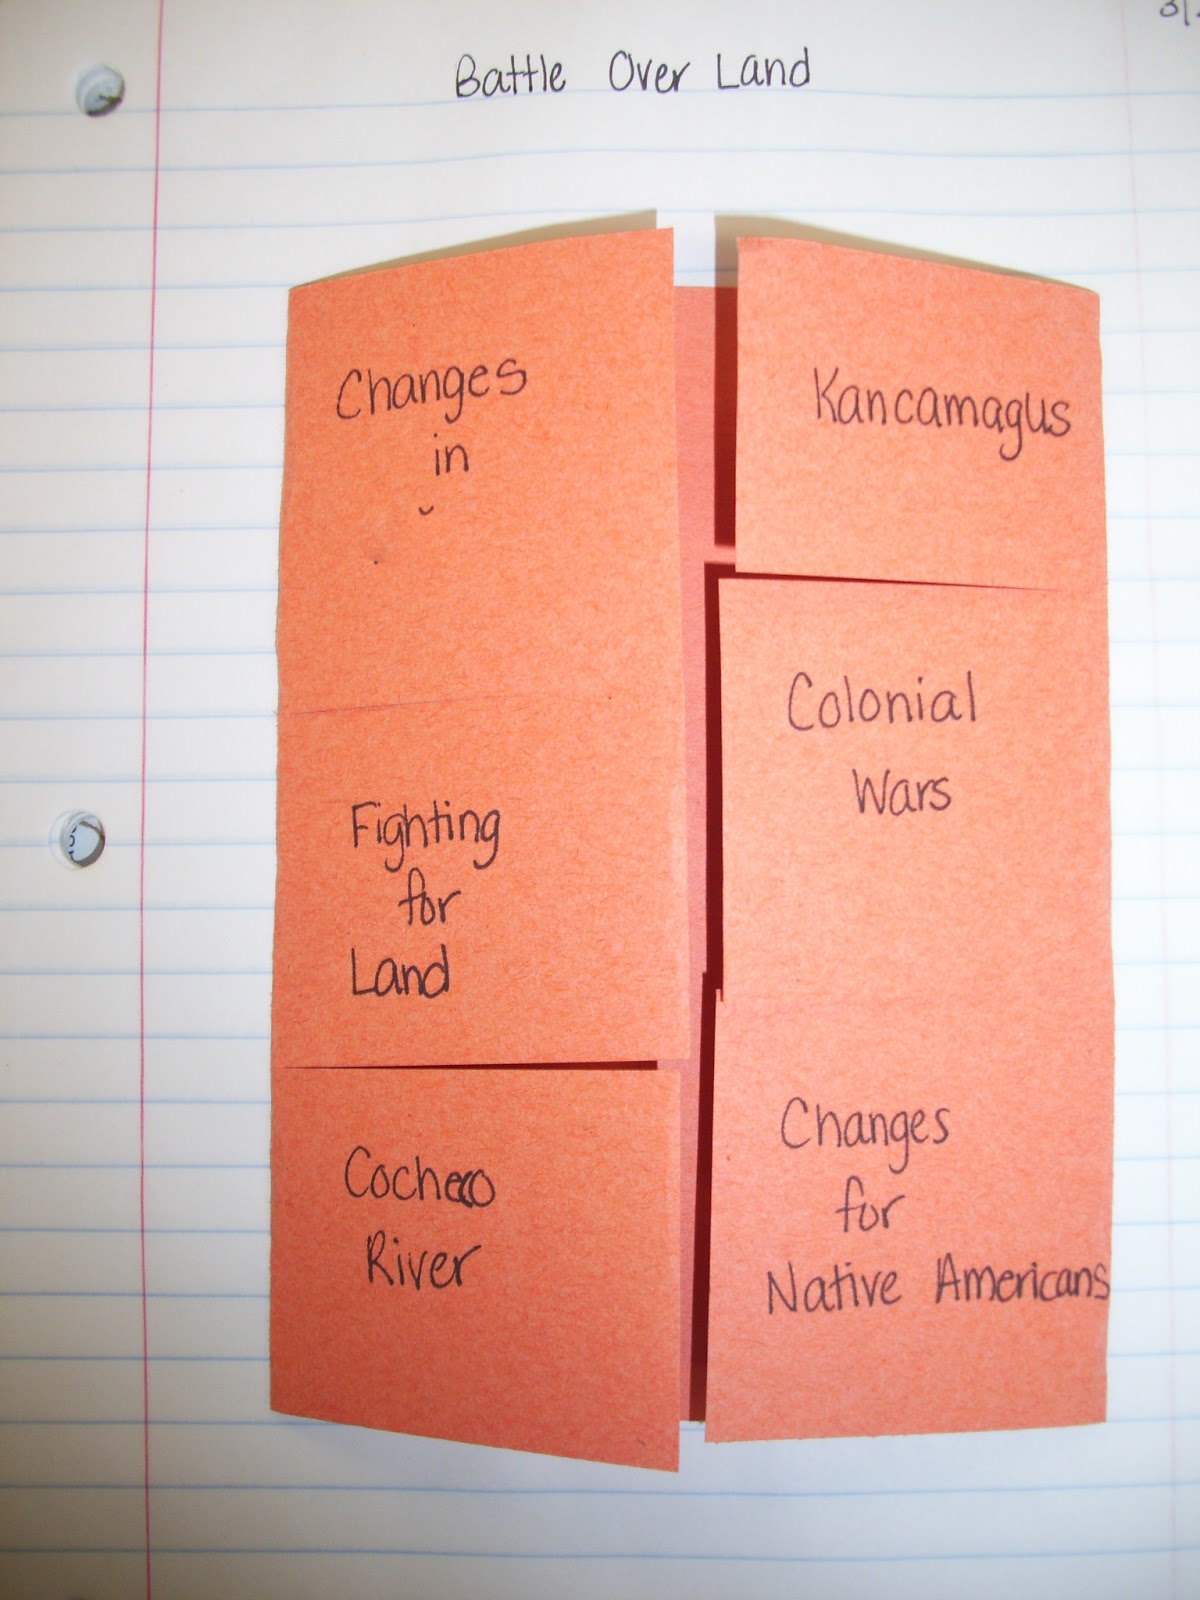 Battle Over Land
Changes
in
Fighting
for
Land
Cocheco
River
Kancamagus
Colonial
Wars
Changes
for
Native Americans